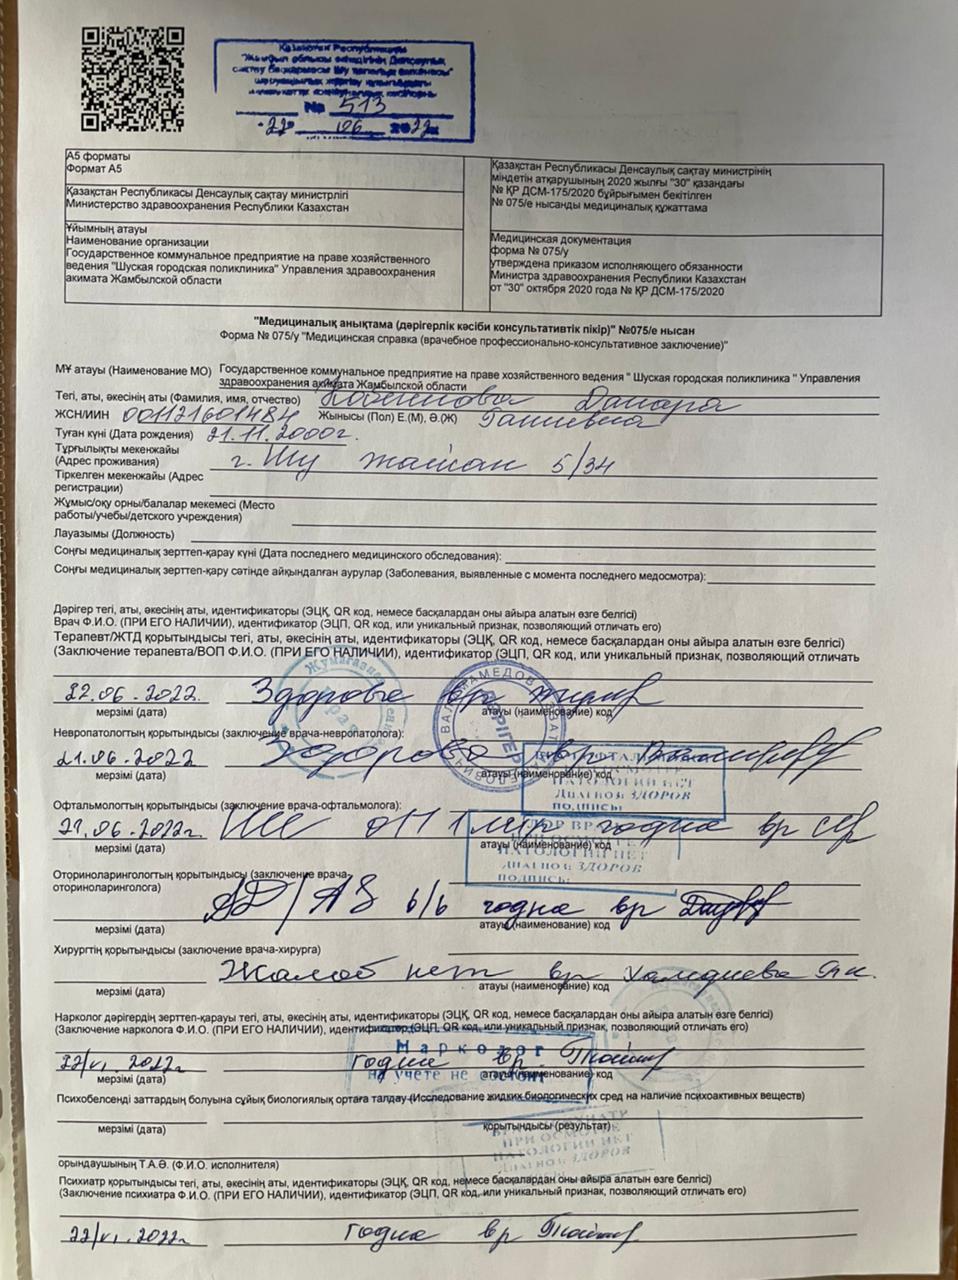 Қазақстан Республикасы
№ 513
"22" 06 2022
А5 форматы
Формат А5
Қазақстан Республикасы Денсаулық сақтау министрлігі
Министерство здравоохранения Республики Казахстан
Ұйымның атауы
Наименование организации
Государственное коммунальное предприятие на праве хозяйственного
ведения "Шуская городская поликлиника" Управления здравоохранения
акимата Жамбылской области
Қазақстан Республикасы Денсаулық сақтау министрінің
міндетін атқарушының 2020 жылғы "30" қазандағы
№ ҚР ДСМ-175/2020 бұйрығымен бекітілген
№ 075/е нысанды медициналық құжаттама
Медицинская документация
форма № 075/у
утверждена приказом исполняющего обязанности
Министра здравоохранения Республики Казахстан
от "30" октября 2020 года № ҚР ДСМ-175/2020
"Медициналық анықтама (дәрігерлік кәсіби консультативтік пікір)" №075/е нысан
Форма № 075/у "Медицинская справка (врачебное профессионально-консультативное заключение)"
МҰ атауы (Наименование МО) Государственное коммунальное предприятие на праве хозяйственного ведения " Шуская городская поликлиника " Управления
здравоохранения акимата Жамбылской области
Тегі, аты, әкесінің аты (Фамилия, имя, отчество) Данара
ЖСН/ИИН 001121601484 Жынысы (Пол) Е.(М), Ә.(Ж) Ганиевна
Туған күні (Дата рождения) 21.11.2000г.
Тұрғылықты мекенжайы
(Адрес проживания) г. Шу 5/34
Тіркелген мекенжайы (Адрес
регистрации)
Жұмыс/оқу орны/балалар мекемесі (Место
работы/учебы/детского учреждения)
Лауазымы (Должность)
Соңғы медициналық зерттеп-қарау күні (Дата последнего медицинского обследования):
Соңғы медициналық зерттеп-қару сәтінде айқындалған аурулар (Заболевания, выявленные с момента последнего медосмотра):
Дәрігер тегі, аты, әкесінің аты, идентификаторы (ЭЦҚ, QR код, немесе басқалардан оны айыра алатын өзге белгісі)
Врач Ф.И.О. (ПРИ ЕГО НАЛИЧИИ), идентификатор (ЭЦП, QR код, или уникальный признак, позволяющий отличать его)
Терапевт/ЖТД қорытындысы тегі, аты, әкесінің аты, идентификаторы (ЭЦҚ, QR код, немесе басқалардан оны айыра алатын өзге белгісі)
(Заключение терапевта/ВОП Ф.И.О. (ПРИ ЕГО НАЛИЧИИ), идентификатор (ЭЦП, QR код, или уникальный признак, позволяющий отличать
22.06.2022. Здорова вр
мерзімі (дата) атауы (наименование) код
Невропатологтың қорытындысы (заключение врача-невропатолога):
21.06.2022 Здорова вр
мерзімі (дата) атауы (наименование) код
ПАТОЛОГИЙ НЕТ
ДИАГНОЗ ЗДОРОВ
ПОДПИСЬ:
Офтальмологтың қорытындысы (заключение врача-офтальмолога):
21.06.2022г. годна вр
мерзімі (дата) атауы (наименование) код
ЛОР ВРАЧ
ПРИ ОСМОТРЕ
ПАТОЛОГИЙ НЕТ
ДИАГНОЗ ЗДОРОВ
ПОДПИСЬ:
Оториноларингологтың қорытындысы (заключение врача-
оториноларинголога)
AD/AS 6/6 годна вр
мерзімі (дата) атауы (наименование) код
Хирургтің қорытындысы (заключение врача-хирурга)
Жалоб нет вр
мерзімі (дата) атауы (наименование) код
Нарколог дәрігердің зерттеп-қарауы тегі, аты, әкесінің аты, идентификаторы (ЭЦҚ, QR код, немесе басқалардан оны айыра алатын өзге белгісі)
(Заключение нарколога Ф.И.О. (ПРИ ЕГО НАЛИЧИИ), идентификатор (ЭЦП, QR код, или уникальный признак, позволяющий отличать его)
Нарколог
на учете не состоит
22/VI.2022г годна вр.
мерзімі (дата) атауы (наименование) код
Психобелсенді заттардың болуына сұйық биологиялық ортаға талдау (Исследование жидких биологических сред на наличие психоактивных веществ)
мерзімі (дата) қорытындысы (результат)
ПРИ ОСМОТРЕ
ПАТОЛОГИЙ НЕТ
ДИАГНОЗ ЗДОРОВ
орындаушының Т.А.Ә. (Ф.И.О. исполнителя)
Психиатр қорытындысы тегі, аты, әкесінің аты, идентификаторы (ЭЦҚ, QR код, немесе басқалардан оны айыра алатын өзге белгісі)
(Заключение психиатра Ф.И.О. (ПРИ ЕГО НАЛИЧИИ), идентификатор (ЭЦП, QR код, или уникальный признак, позволяющий отличать его)
22/VI.2022г годна вр